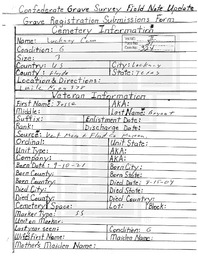 Confederate Grave Survey Field Note Update
Grave Registration Submissions Form
Cemetery Information
Name: Lockney Cem
Condition: G
Size: 3
Country: US City: Lockney
County: Floyd State: Texas
Location & Directions:
Veteran Information
First Name: Jesse AKA:
Middle: Last Name:
Suffix: Enlistment Date:
Rank: Discharge Date:
Source:
Ordinal: Unit State:
Unit Type: AKA:
Company: AKA:
Born Date: 9-10-21 Born City:
Born County: Born State:
Born Country: Died Date:
Died City: Died State:
Died County: Died Country:
Cemetery Space: Lot: Block:
Marker Type: SS
Unit on Marker:
Last year seen: Condition: G
Wife First Name: Maiden Name:
Mother's Maiden Name: